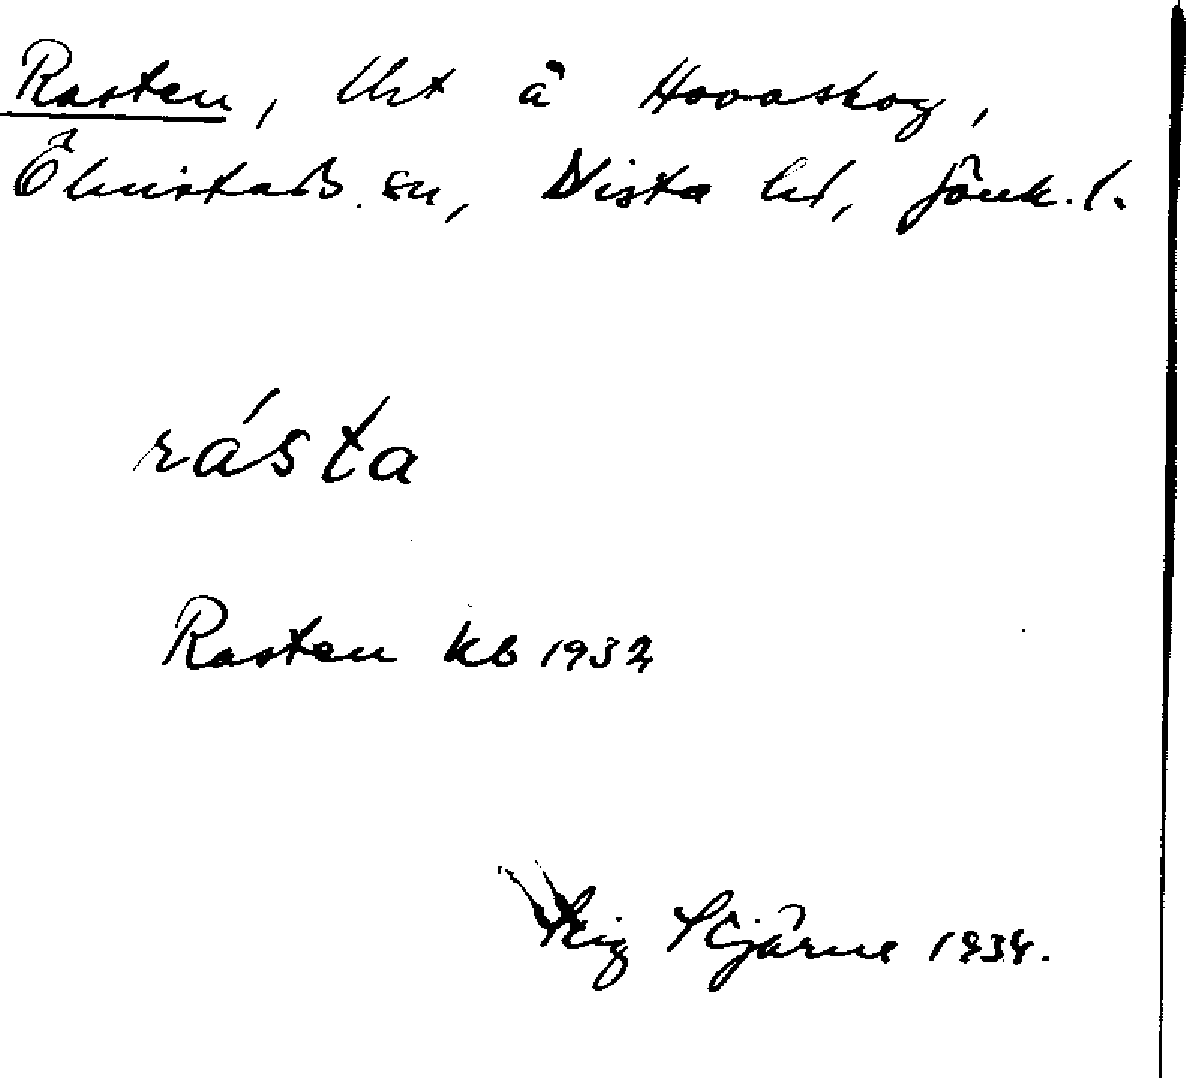 Rasten, lht å Hovaskog,
Ölmstads sn, Vista hd, Jönk. l.
rásta
Rasten kb 1932
Stig Stjärne 1934.